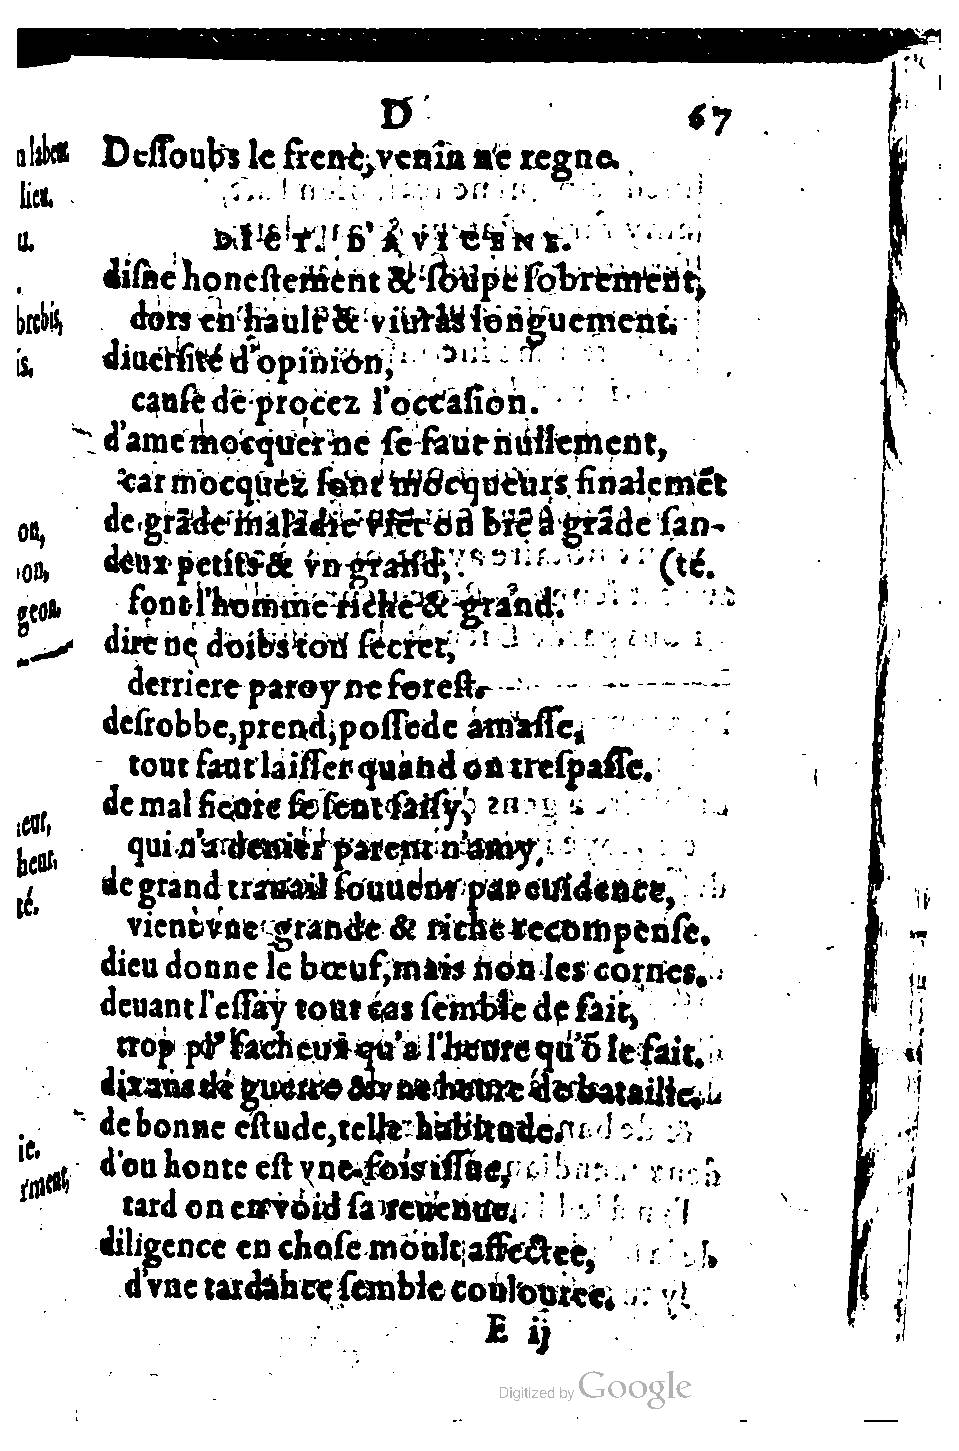 D 67
Deſſoubs le frene, venin ne regne.
DICT. D'AVICENE.
diſne honeſtement & ſoupe ſobrement,
dors en hault & viuras longuement.
diuerſité d'opinion,
cauſe de procez l'occaſion.
d'ame mocquer ne ſe faut nullement,
car mocquez ſont mocqueurs finalemēt
de grāde maladie viēt on biē à grāde ſan-
deux petits & vn grand, (té.
font l'homme riche & grand.
dire ne doibs ton ſecret,
derriere paroy ne foreſt.
deſrobbe, prend, poſſede amaſſe,
tout faut laiſſer quand on treſpaſſe.
de mal ſe ſent ſaiſy,
qui n'a denier parent n'amy.
de grand trauail ſouuent par euidence,
vient vne grande & riche recompenſe.
dieu donne le bœuf, mais non les cornes.
deuant l'eſſay tout cas ſemble de fait,
trop pl' facheux qu'a l'heure qu'ō le fait.
dix ans de guerre & vne heure de bataille.
de bonne eſtude, telle habitude.
d'ou honte eſt vne fois iſſue,
tard on en void ſa reuenue.
diligence en choſe moult affectee,
d'vne tardance ſemble coulouree.
E ij
n labeur
lieu.
u.
brebis,
is.
on,
on,
geon.
ieur,
heur.
té.
ie.
rment,
Digitized by Google